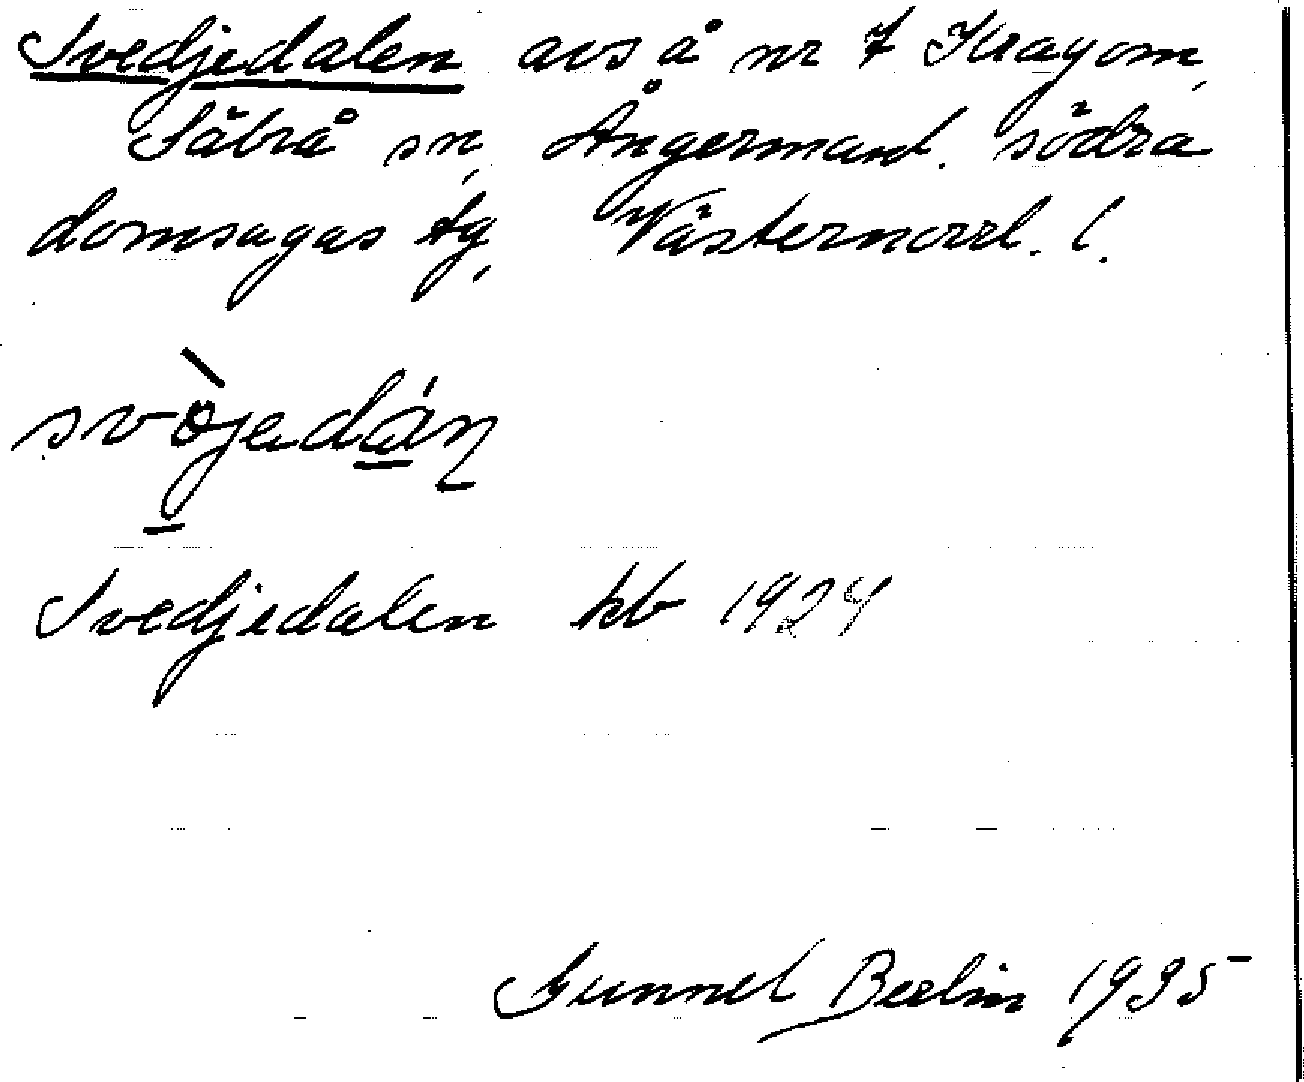 Svedjedalen avs å nr 7 Kragom,
Säbrå sn, Ångermanl. södra
domsagas tg, Västernorrl. l.
svòjedáṇ
Svedjedalen kb 1924
Gunnel Berlin 1935